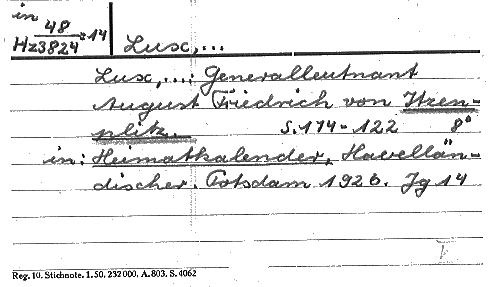 in
48
Hz3824:14
Lusc,...
Lusc,...: Generalleutnant
August Friedrich von Itzen-
plitz. S. 114-122 8°
in: Heimatkalender, Havellän-
discher. Potsdam 1926. Jg 14
Reg. 10. Stichnote. 1. 50. 232 000. A. 803. S. 4062